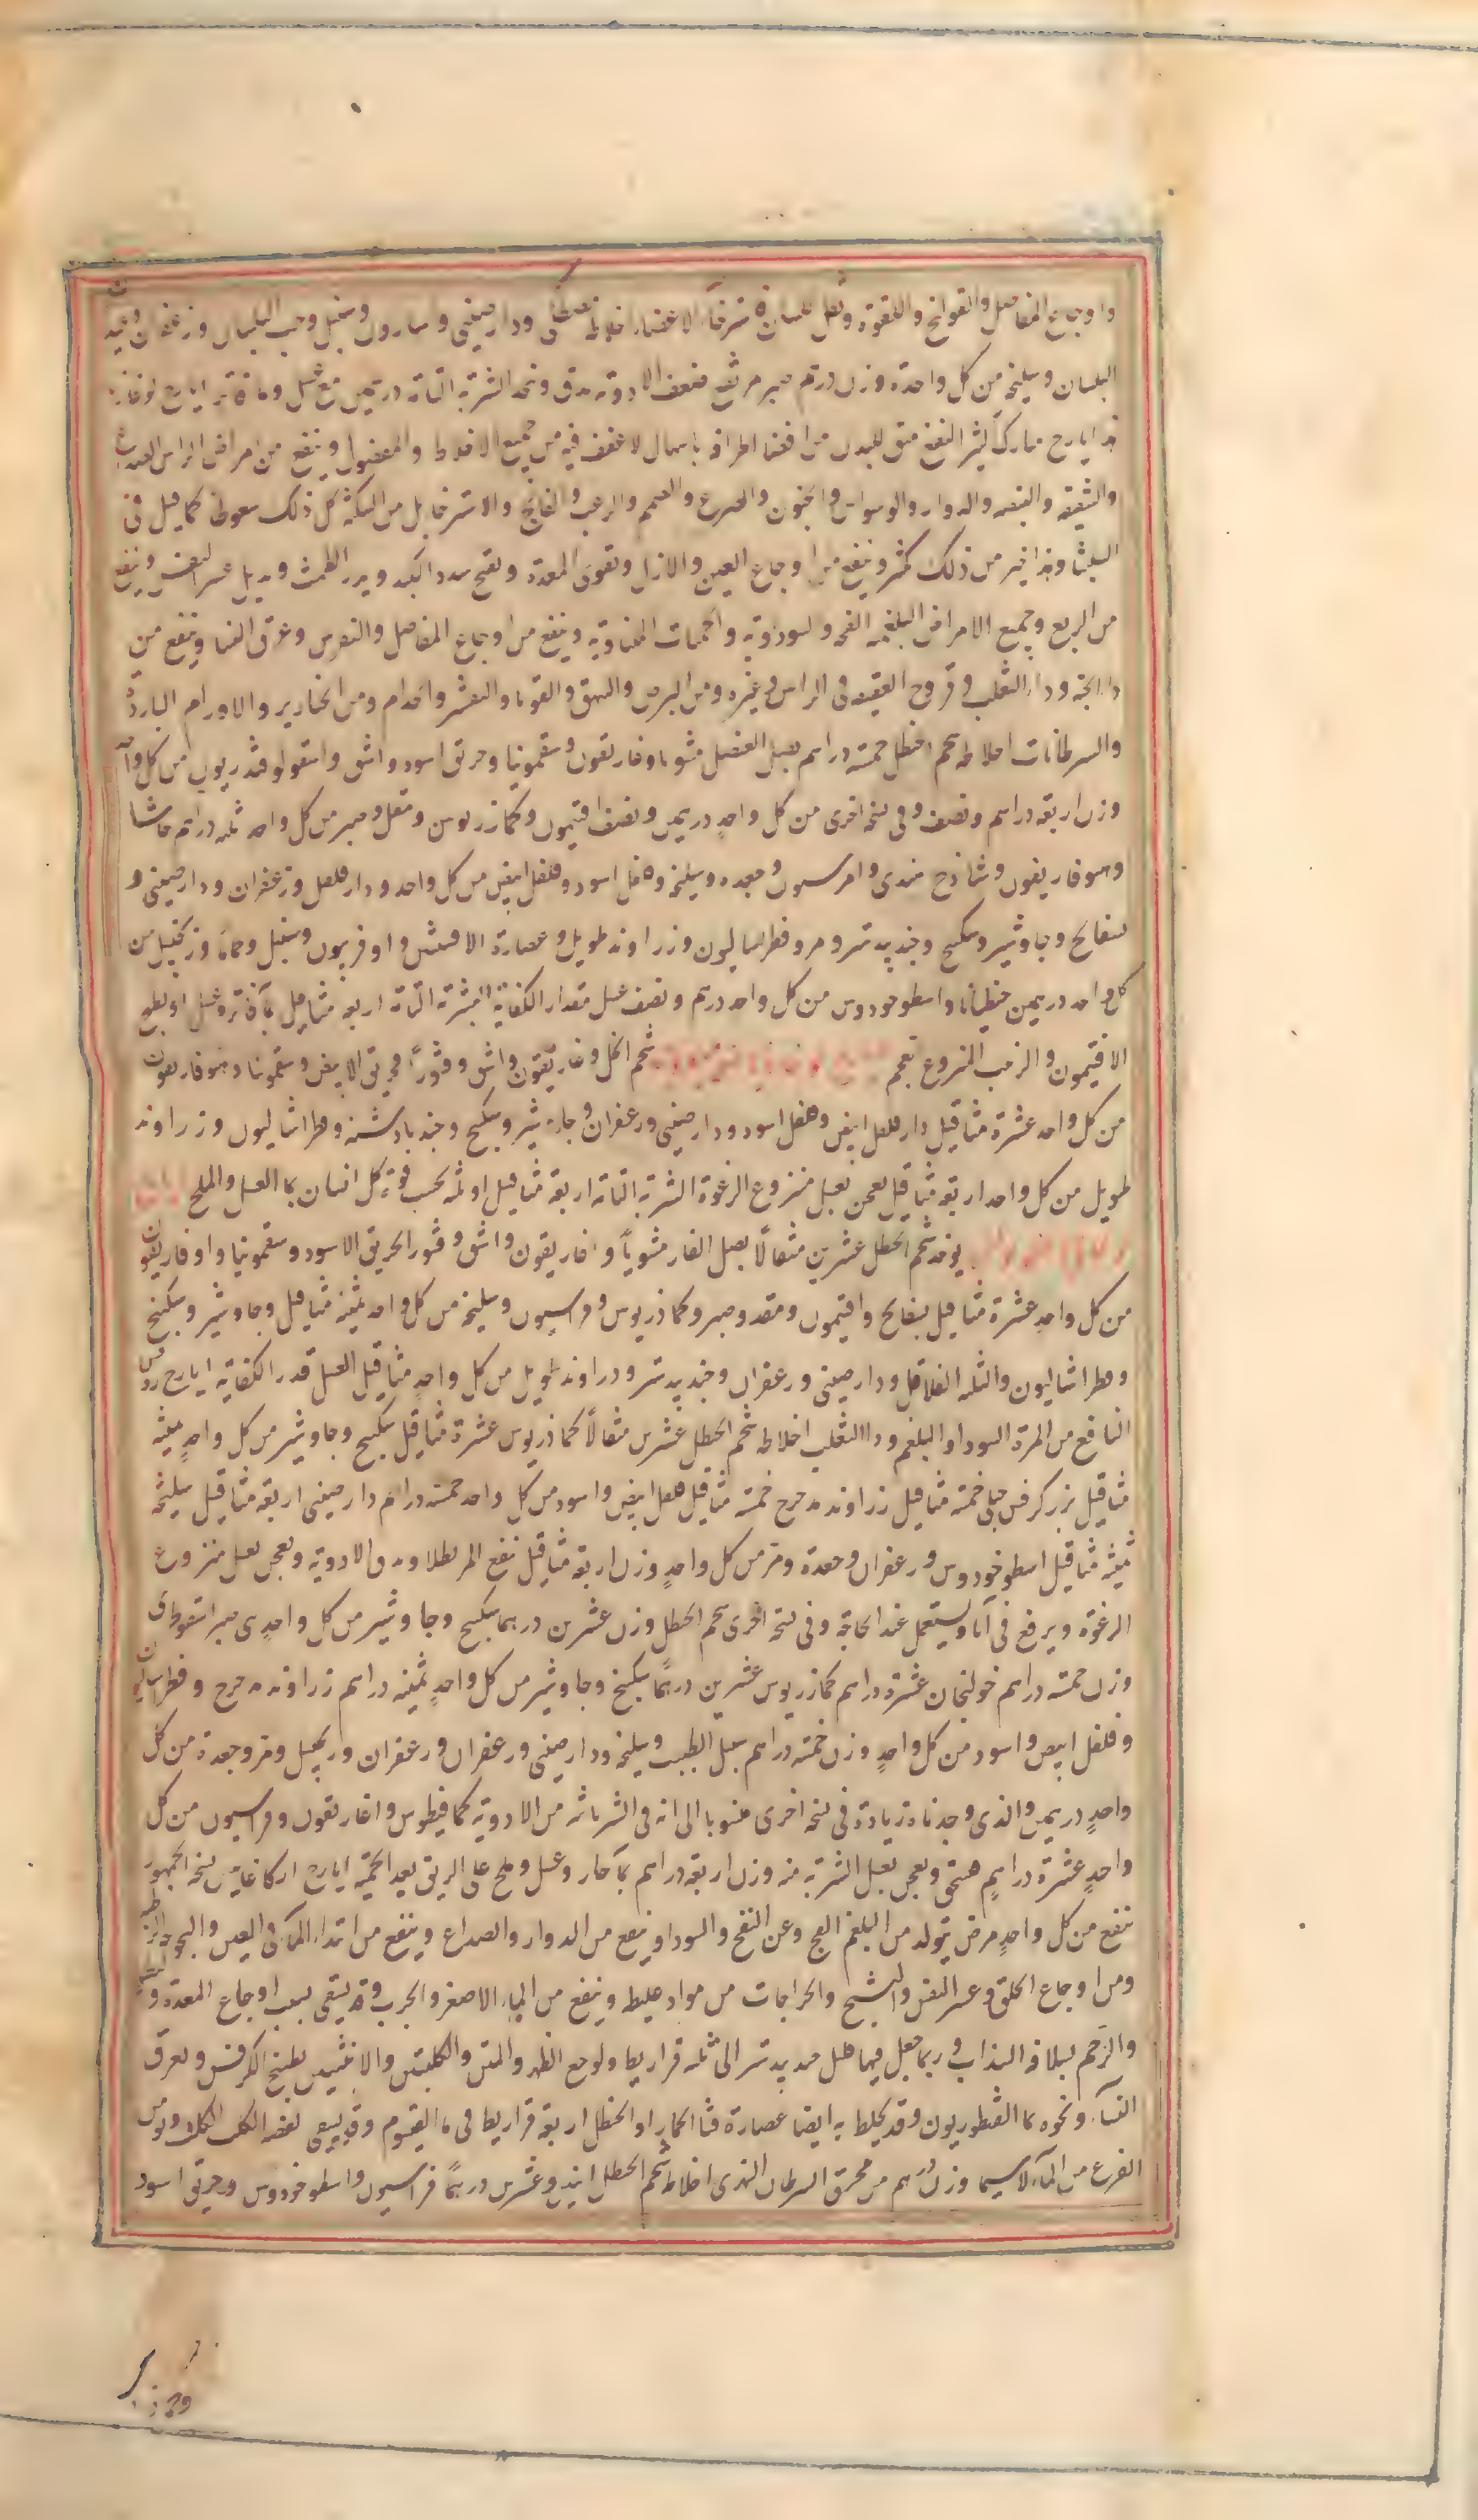 واوجاع المفاصل والقولنج واللقوة وثقل اللسان واسترخاء الاعضاء اخلاطه مصطكى ودارصينى واسارون وسنبل وحب البلسان وزعفران وعيدان
البلسان وسليخه من كل واحدة وزن درهم صبر مر ضعف الادوية يدق وينخل الشربة التامة درهمين مع عسل وماء فاتر ايارج لوغاذيا
هذا ايارج مبارك كثير النفع منق للبدن من اقصا اطرافه باسهال لا عنف فيه من جميع الاخلاط والفضول وينفع من امراض الراس العصبية
والشقيقة والبيضه والدوار والوسواس والجنون والصرع والصمم والرعب والفالج والاسترخا بل من السكتة كل ذلك سعوطا كما قيل فى
السليثا وهذا خير من ذلك كثير وينفع من اوجاع العين والاذن ويقوى المعدة ويفتح سدد الكبد ويدر الطمث ويزيل عسر النفس وينفع
من الربع وجميع الامراض البلغميه الفجه والسوداوية والحميات المتناوبة وينفع من اوجاع المفاصل والنقرس وعرق النسا وينفع من
داء الحية وداء الثعلب وقروح العتيقه فى الراس وغيره ومن البرص والبهق والقوبا والتقشر والجذام ومن الخنازير والاورام الباردة
والسرطانات اخلاطه شحم الحنظل خمسة دراهم بصل العنصل مشويا وغاريقون وسقمونيا وخربق اسود واشق واسقولوقندريون من كل واحد
وزن اربعة دراهم ونصف وفى نسخة اخرى من كل واحد درهمين ونصف افتيمون وكماذريوس ومقل وصبر من كل واحد ثلثة دراهم حاشا
وهوفاريقون وشاذج هندى وفراسيون وجعده وسليخه وفلفل اسود وفلفل ابيض من كل واحد ودار فلفل وزعفران ودارصينى و
بسفايج وجاوشير وسكبينج وجندبيدستر ومر وفطراساليون وزراوند طويل وعصارة الافسنتين واوفربيون وسنبل وحماما وزنجبيل من
كل واحد درهمين جنطيانا واسطوخودوس من كل واحد درهم ونصف عسل مقدار الكفاية الشربة التامة اربعة مثاقيل بماء فاتر وعسل او بطبيخ
الافتيمون والزبيب المنزوع العجم شحم الحنظل وغاريقون واشق وقشور الخربق الابيض وسقمونيا وهوفاريقون
من كل واحد عشرة مثاقيل دار فلفل ابيض وفلفل اسود ودارصينى وزعفران وجاوشير وسكبينج وجندبادستر وفطراساليون وزراوند
طويل من كل واحد اربعة مثاقيل يعجن بعسل منزوع الرغوة الشربة التامة اربعة مثاقيل او ثلثه بحسب قوة كل انسان بماء العسل والملح
يوخذ شحم الحنظل عشرين مثقالا بصل الفار مشويا وغاريقون واشق وقشور الخربق الاسود وسقمونيا واوفاريقون
من كل واحد عشرة مثاقيل بسفايج وافتيمون ومقل وصبر وكماذريوس وفراسيون وسليخه من كل واحد ثمنية مثاقيل وجاوشير وسكبينج
وفطراساليون والثلثه الفلافل ودارصينى وزعفران وجندبيدستر وزراوند طويل من كل واحد مثاقيل العسل قدر الكفاية ايارج روفس
النافع من المرة السودا والبلغم وداء الثعلب اخلاطه شحم الحنظل عشرين مثقالا كماذريوس عشرة مثاقيل سكبينج وجاوشير من كل واحد ثمنية
مثاقيل بزر كرفس جبلى خمسة مثاقيل زراوند مدحرج خمسة مثاقيل فلفل ابيض واسود من كل واحد خمسة دراهم دارصينى اربعة مثاقيل سليخه
ثمنية مثاقيل اسطوخودوس وزعفران وجعدة ومر من كل واحد وزن اربعة مثاقيل ينقع المر بطلا ويدق الادوية ويعجن بعسل منزوع
الرغوة ويرفع فى انا ويستعمل عند الحاجة وفى نسخة اخرى شحم الحنظل وزن عشرين درهما سكبينج وجاوشير من كل واحد ى صبر اسقوطرى
وزن خمسة دراهم خولنجان عشرة دراهم كماذريوس عشرين درهما سكبينج وجاوشير من كل واحد ثمنية دراهم زراوند مدحرج وفطراساليون
وفلفل ابيض واسود من كل واحد وزن خمسة دراهم سنبل الطيب وسليخه ودارصينى وزعفران وزعفران وزنجبيل ومر وجعدة من كل
واحد درهمين والذى وجدناه زيادة فى نسخة اخرى منسوبا الى انه فى الشربات من الادوية كمافيطوس واغاريقون وفراسيون من كل
واحد عشرة دراهم يستحق ويعجن بعسل الشربة منه وزن اربعة دراهم بماء حار وعسل وملح على الريق بعد الحمية ايارج اركاغانيس نسخة الجمهور
ينفع من كل واحد مرض يتولد من البلغم الفج وعن النفخ والسودا وينفع من الدوار والصداع وينفع من ابتداء الماء فى العين والبحوحة
ومن اوجاع الحلق وعسر النفس والتشنج والخراجات من مواد غليظه وينفع من الماء الاصفر والجرب وقد يسقى بسبب اوجاع المعدة و
والرحم بسلافة السذاب وربما جعل فيها مثل جندبيدستر الى ثلثه قراريط ولوجع الظهر والمتن والكليتين والانثيين بطبيخ الكرفس ولعرق
النساء ونحوه بماء القنطوريون وقد يخلط به ايضا عصارة قثاء الحمار او الحنظل اربعة قراريط فى ماء القيصوم وقد يسقى لعضه الكلب الكلب ومن
الفزع من الماء لاسيما وزن درهم من محرق السرطان النهرى اخلاطه شحم الحنظل احد وعشرين درهما فراسيون واسطوخودوس وخربق اسود